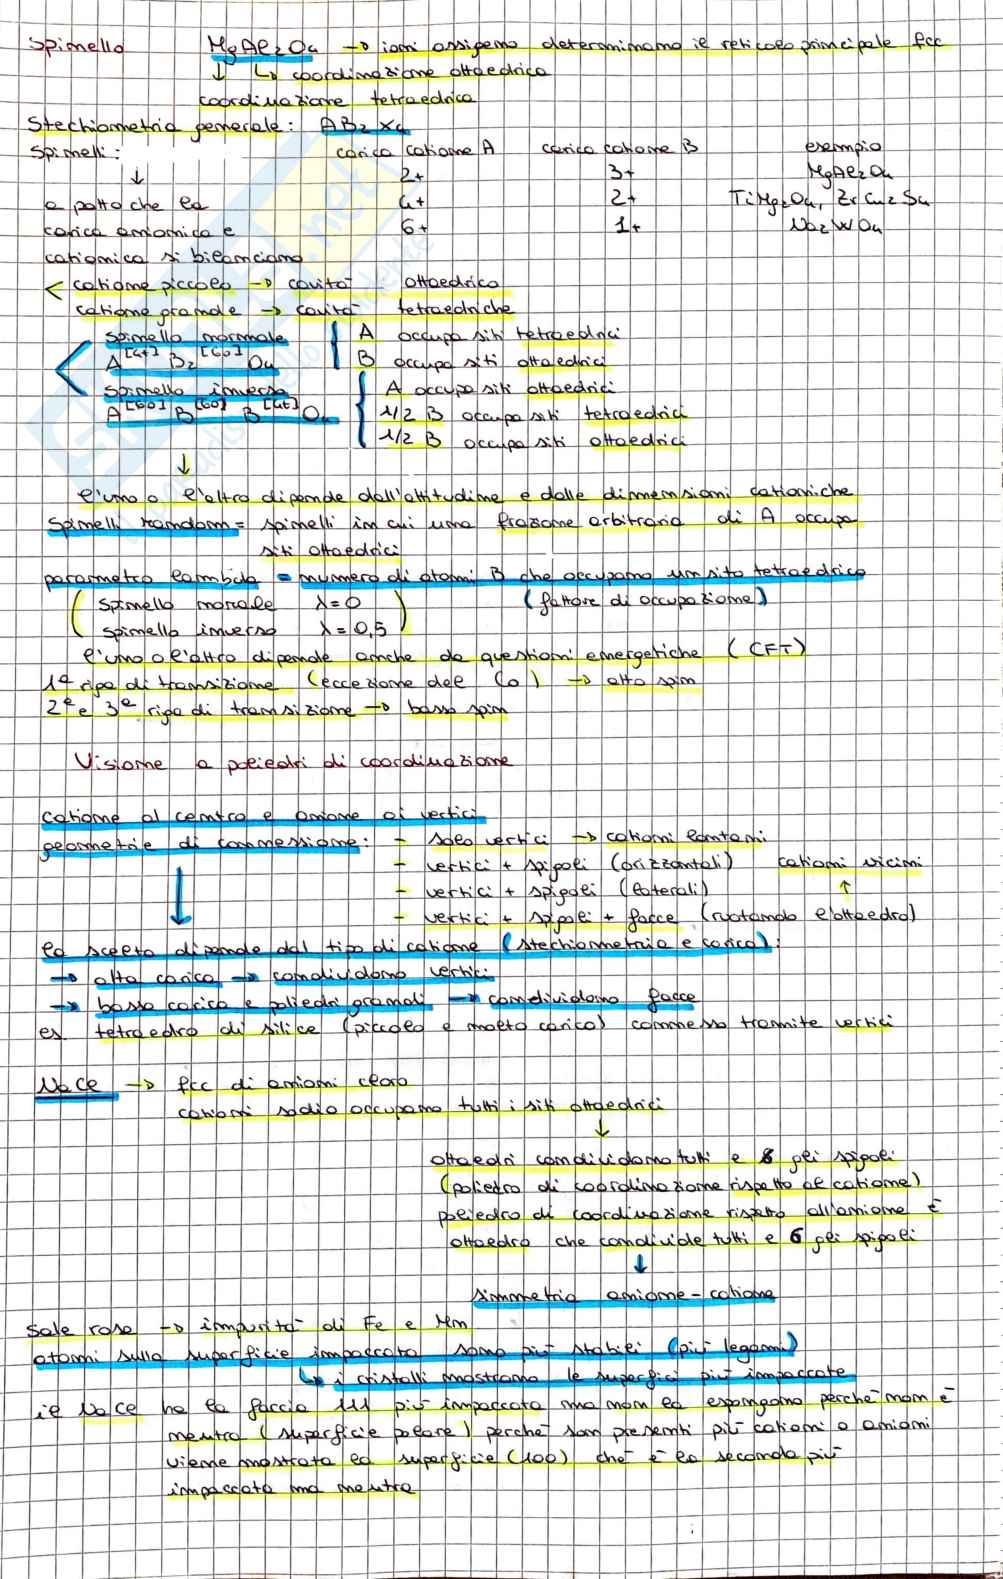 Spinello MgAl2O4 → ioni ossigeno determinano il reticolo principale fcc
↓ ↳ coordinazione ottaedrica
coordinazione tetraedrica
Stechiometria generale: AB2X4
Spinelli: carica catione A carica catione B esempio
↓ 2+ 3+ MgAl2O4
a patto che la 4+ 2+ TiMg2O4, ZrCu2S4
carica anionica e 6+ 1+ Na2WO4
cationica si bilanciano
< catione piccolo → cavità ottaedrica
catione grande → cavità tetraedriche
spinello normale { A occupa siti tetraedrici
A[4t] B2[6o] O4 B occupa siti ottaedrici
spinello inverso { A occupa siti ottaedrici
A[6o] B[6o] B[4t] O4 1/2 B occupa siti tetraedrici
1/2 B occupa siti ottaedrici
↓
l'uno o l'altro dipende dall'attitudine e dalle dimmensioni cationiche
Spinelli random = spinelli in cui una frazione arbitraria di A occupa
siti ottaedrici
parametro lambda = numero di atomi B che occupano un sito tetraedrico
( spinello normale λ=0 ) (fattore di occupazione)
spinello inverso λ=0,5
l'uno o l'altro dipende anche da questioni energetiche (CFT)
1ª riga di transizione (eccezione del Co) → alto spin
2ª e 3ª riga di transizione → basso spin
Visione a poliedri di coordinazione
catione al centro e anione ai vertici
geometrie di connessione: - solo vertici → cationi lontani
- vertici + spigoli (orizzontali) cationi vicini
- vertici + spigoli (laterali) ↑
- vertici + spigoli + facce (ruotando l'ottaedro)
la scelta dipende dal tipo di catione (stechiometria e carica):
→ alta carica → condividono vertici
→ bassa carica e poliedri grandi → condividono facce
es tetraedro di silice (piccolo e molto carico) connesso tramite vertici
NaCl → fcc di anioni cloro
cationi sodio occupano tutti i siti ottaedrici
↓
ottaedri condividono tutti e 8 gli spigoli
(poliedro di coordinazione rispetto al catione)
poliedro di coordinazione rispetto all'anione è
ottaedro che condivide tutti e 6 gli spigoli
↓
simmetria anione-catione
Sale rosa → impurità di Fe e Mn
atomi sulla superficie impaccata sono più stabili (più legami)
↳ i cristalli mostrano le superfici più impaccate
il NaCl ha la faccia 111 più impaccata ma non la espongono perchè non è
neutra (superficie polare) perchè son presenti più cationi o anioni
viene mostrata la superficie (100) che è la seconda più
impaccata ma neutra